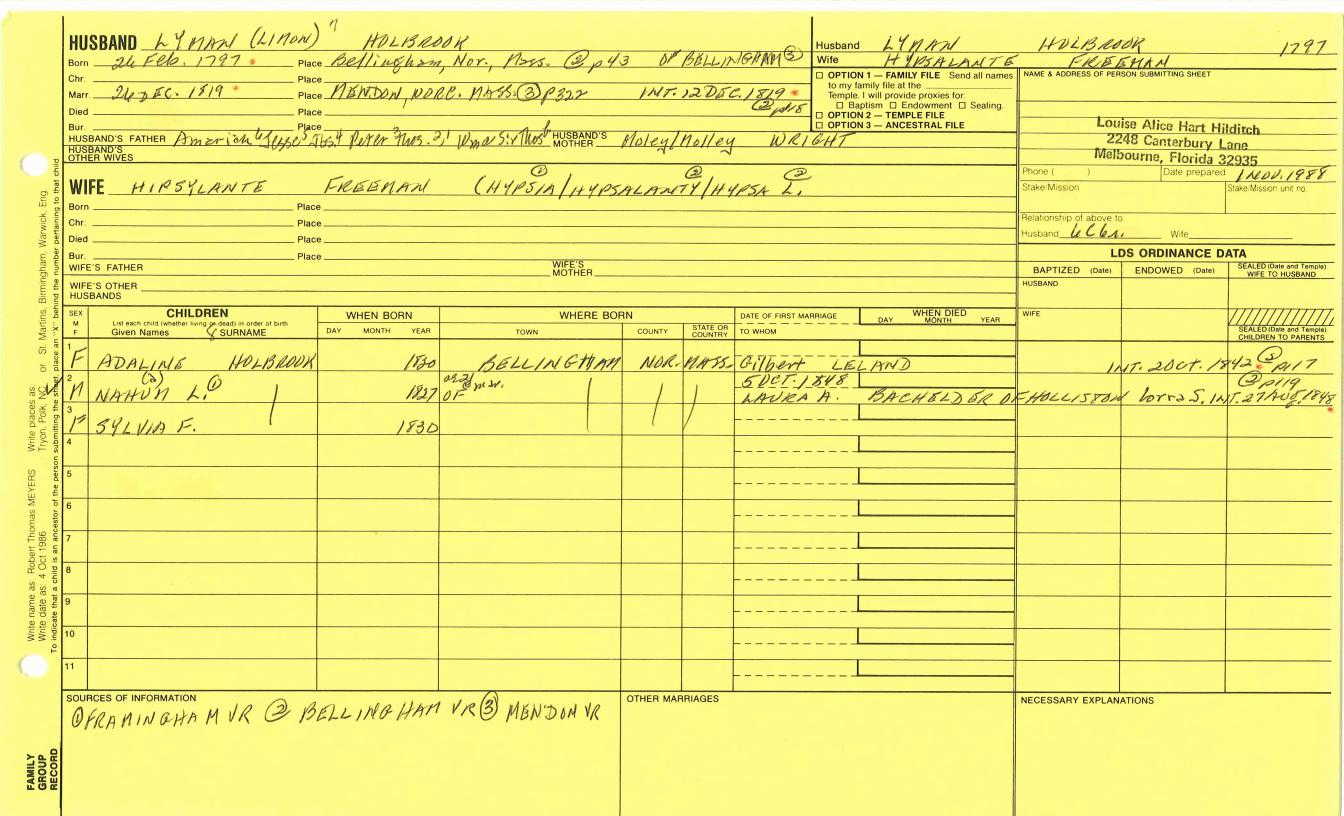 HUSBAND LYMAN (LIMON) 7 HOLBROOK
Born 26 Feb. 1797 Place Bellingham, Nor., Mass. ② p43 OF BELLINGHAM ③
Chr. Place
Marr 26 DEC. 1819 Place MENDON, WORC. MASS. ③ P322 INT. 12 DEC. 1819 ② p118
Died Place
Bur. Place
HUSBAND'S FATHER Amariah 6 Jesse 5 Peter 3 Thos. 2,1 HUSBAND'S MOTHER Moley/Molley WRIGHT
HUSBAND'S OTHER WIVES
Husband LYMAN HOLBROOK 1797
Wife HYPSALANTE FREEMAN
☐ OPTION 1 — FAMILY FILE Send all names
to my family file at the
Temple. I will provide proxies for:
☐ Baptism ☐ Endowment ☐ Sealing.
☐ OPTION 2 — TEMPLE FILE
☐ OPTION 3 — ANCESTRAL FILE
NAME & ADDRESS OF PERSON SUBMITTING SHEET
Louise Alice Hart Hilditch
2248 Canterbury Lane
Melbourne, Florida 32935
Phone ( ) Date prepared 1 NOV. 1988
Stake/Mission Stake/Mission unit no.
Relationship of above to
Husband 6C6r. Wife
WIFE HIPSYLANTE FREEMAN (HYPSIA ① /HYPSALANTY ② /HYPSA L. ②
Born Place
Chr. Place
Died Place
Bur. Place
WIFE'S FATHER WIFE'S MOTHER
WIFE'S OTHER HUSBANDS
LDS ORDINANCE DATA
BAPTIZED (Date) ENDOWED (Date) SEALED (Date and Temple) WIFE TO HUSBAND
HUSBAND
WIFE
SEALED (Date and Temple) CHILDREN TO PARENTS
SEX M F CHILDREN WHEN BORN WHERE BORN DATE OF FIRST MARRIAGE WHEN DIED
List each child (whether living or dead) in order of birth
Given Names & SURNAME DAY MONTH YEAR TOWN COUNTY STATE OR COUNTRY TO WHOM DAY MONTH YEAR
1 F ADALINE HOLBROOK 1820 BELLINGHAM NOR. MASS. Gilbert LELAND INT. 2 OCT. 1842 ② p117
2 M NAHUM (2) L. ① 1827 OF 5 OCT. 1848 LAURA A. BACHELDER OF HOLLISTON INT. 27 Aug. 1848 ② p119
3 F SYLVIA F. 1830
4
5
6
7
8
9
10
11
SOURCES OF INFORMATION
① FRAMINGHAM VR ② BELLINGHAM VR ③ MENDON VR
OTHER MARRIAGES
NECESSARY EXPLANATIONS
Write name as: Robert Thomas MEYERS Write places as: Tryon, Polk, NC or St. Martins, Birmingham, Warwick, Eng.
Write date as: 4 Oct 1986
To indicate that a child is an ancestor of the person submitting the sheet, place an "X" behind the number pertaining to that child
FAMILY
GROUP
RECORD